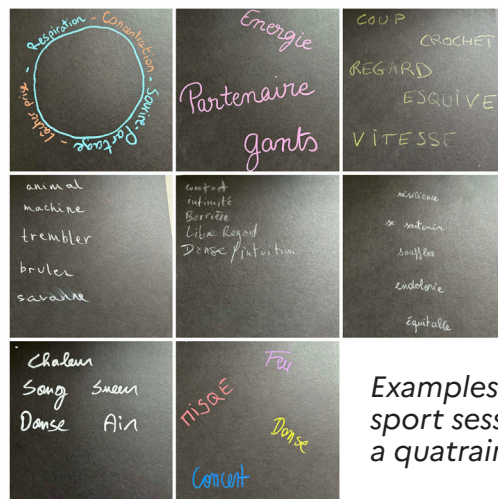 Respiration - Concentration - Sourire-Partage - Lâcher prise -
Energie
Partenaire
gants
COUP
CROCHET
REGARD
ESQUIVE
VITESSE
animal
machine
trembler
bruler
savanne
contact
Intimité
Barrière
Libre Regard
Danse intuition
résilience
se soutenir
souffler
endolorie
équitable
Chaleur
Sang Sueur
Danse Air
Feu
Danse
Concert
Examples
sport sess
a quatrain